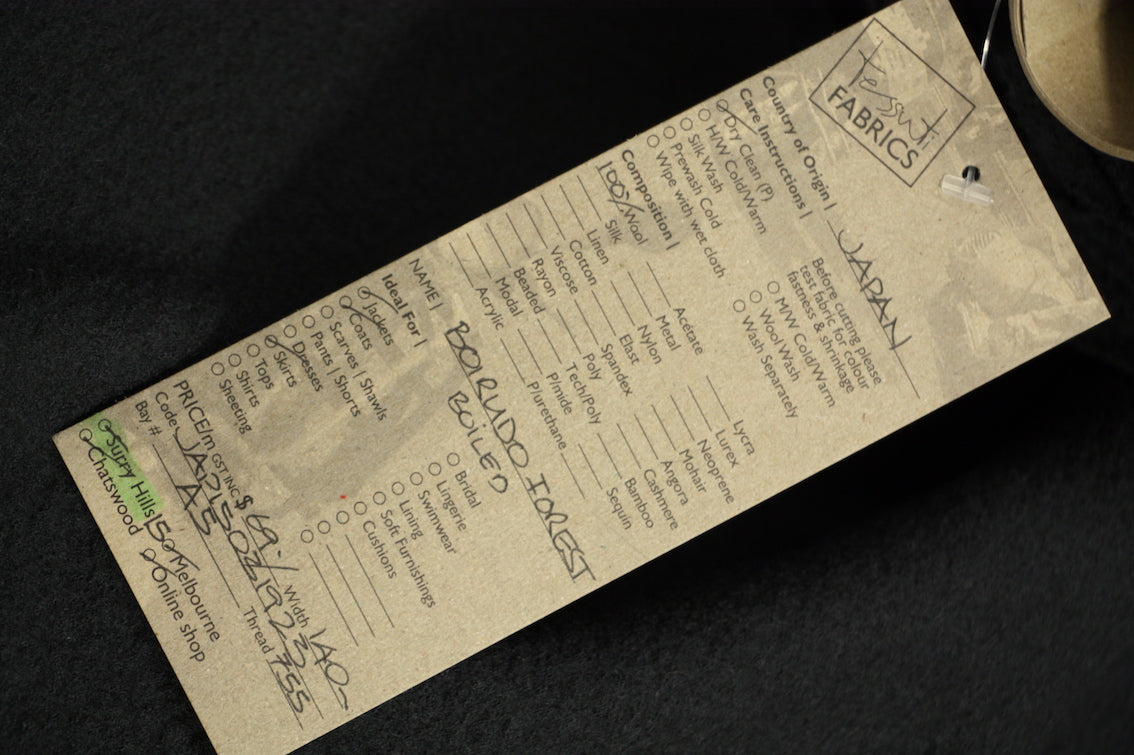 Tessuti
FABRICS
Country of Origin | JAPAN
Care Instructions |
Dry Clean (P)
H/W Cold/Warm
Silk Wash
Prewash Cold
Wipe with wet cloth
Before cutting please
test fabric for colour
fastness & shrinkage
M/W Cold/Warm
Wool Wash
Wash Separately
Composition |
100% Wool
Silk
Linen
Cotton
Viscose
Rayon
Beaded
Modal
Acrylic
Acetate
Metal
Nylon
Elast
Spandex
Poly
Tech/Poly
P/mide
P/urethane
Lycra
Lurex
Neoprene
Mohair
Angora
Cashmere
Bamboo
Sequin
NAME | BOIRUDO FOREST
BOILED
Ideal For |
Jackets
Coats
Scarves | Shawls
Pants | Shorts
Dresses
Skirts
Tops
Shirts
Sheeting
Bridal
Lingerie
Swimwear
Lining
Soft Furnishings
Cushions
PRICE/m GST INC $ 69.- Width 140-
Code Thread 755
Bay # A5
Surry Hills 150 Melbourne
Chatswood Online shop